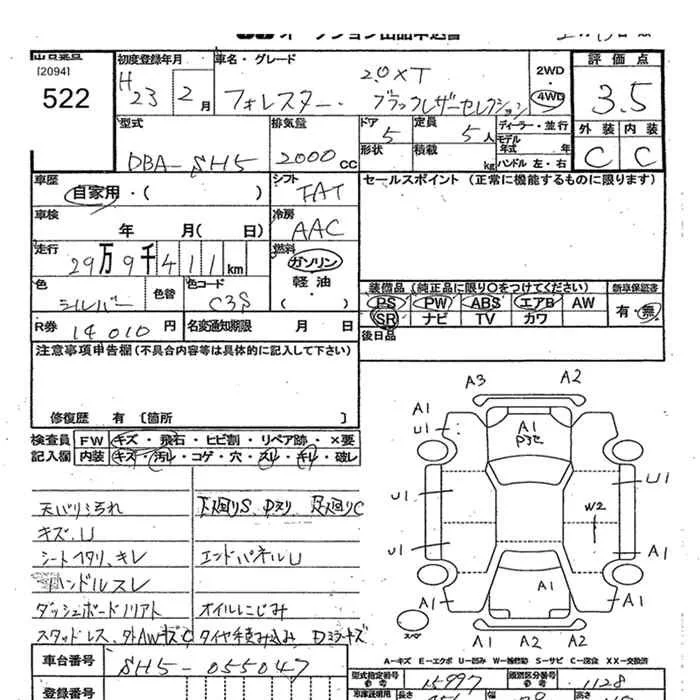 オークション出品申込書
[2094]
522
初度登録年月
H 23 2 月
車名・グレード
2.0XT
フォレスター・ ブラックレザーセレクション
2WD
4WD
評価点
3.5
外装 内装
C C
型式
DBA-SH5
排気量
2000 cc
ドア 5
形状
定員 5 人
積載 kg
ディーラー・並行
モデル年式 年
ハンドル 左・右
車歴
自家用・( )
シフト
FAT
車検
年 月( 日)
冷房
AAC
走行
29万9千411km
燃料
ガソリン
軽油・
( )
色
シルバー
色替
色コード
C3S
R券 14010 円
名変通知期限 月 日
セールスポイント (正常に機能するものに限ります)
装備品 (純正品に限り○をつけてください)
PS PW ABS エアB AW
SR ナビ TV カワ
新車保証書
有・無
後日品
注意事項申告欄 (不具合内容等は具体的に記入して下さい)
修復歴 有 [箇所 ]
検査員記入欄
FW キズ・飛石・ヒビ割・リペア跡・×要
内装 キズ・汚レ・コゲ・穴・スレ・キレ・破レ
天バリ汚れ
キズ、U
シートヘタリ、キレ
ハンドルスレ
ダッシュボードノリアト
スタッドレス、外AWキズC
下廻りS、
足廻りC
エンドパネルU
オイルにじみ
タイヤ
A3 A2
A1
U1
A1
U1
U1
W2
U1
A1
A1
A1
A1
A1 A2 A2
スペア
A-キズ E-エクボ U-凹み W-補修跡 S-サビ C-腐食 XX-交換済
車台番号
SH5-055047
登録番号
型式指定番号 参考 15997
類別区分番号 参考 1128
長さ